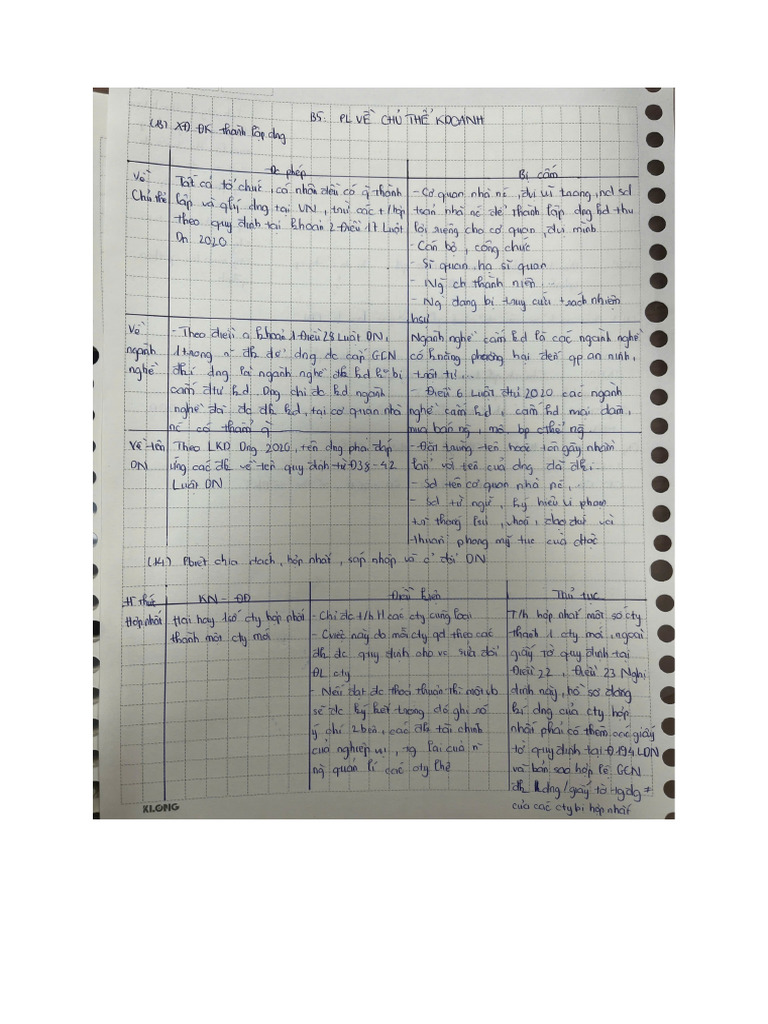 B5. PL VỀ CHỦ THỂ KDOANH
XĐ ĐK thành lập dng
Đc phép
Bị cấm
Về
Chủ thể
Tất cả tổ chức, cá nhân đều có q thành
lập và qlý dng tại VN, trừ các t/hợp
theo quy định tại khoản 2 Điều 17 Luật
Dn 2020
- Cơ quan nhà nc, đvị vũ trang, sd
tsản nhà nc để thành lập dng kd thu
lợi riêng cho cơ quan, đvị mình
- Cán bộ, công chức
- Sĩ quan, hạ sĩ quan
- Ng ch thành niên
- Ng đang bị truy cứu trách nhiệm
hsự
Về
ngành
nghề
- Theo điểm a khoản 1 Điều 28 Luật DN,
1 trong n đk để dng dc cấp GCN
đkí dng là ngành nghề đk kd ko bị
cấm đtư kd. Dng chỉ dc kd ngành
nghề đã dc đk kd, tại cơ quan nhà
nc có thẩm q
Ngành nghề cấm kd là các ngành nghề
có knăng phương hại đến qp an ninh,
trật tự...
- Điều 6 Luật đtư 2020 các ngành
nghề cấm kd, cấm kd mại dâm,
mua bán ng, mô, bp cthể ng
Về tên
DN
Theo LKD Dng 2020, tên dng phải đáp
ứng các đk về tên quy định từ Đ38-42
Luật DN
- Đặt trùng tên hoặc tên gây nhầm
lẫn với tên của dng đã đkí
- Sd tên cơ quan nhà nc,
- Sd từ ngữ, ký hiệu vi phạm
tr thống lsử, vhoá, đạo đức và
thuần phong mỹ tục của dtộc
Pbiệt chia tách, hợp nhất, sáp nhập và c' đổi DN
H thức
KN - ĐĐ
Điều kiện
Thủ tục
Hợp nhất
Hai hay 1số cty hợp nhất
thành một cty mới
- Chỉ dc t/h H các cty cùng loại
- Cviệc này do mỗi cty qđ theo các
đk dc quy định cho vc sửa đổi
ĐL cty
- Nếu đạt dc thoả thuận thì một vb
sẽ dc ký kết trong đó ghi rõ
ý chí 2 bên, các đk tài chính
của nghiệp vụ, tg lai của n
ng quản lí các cty
T/h hợp nhất một số cty
thành 1 cty mới, ngoài
giấy tờ quy định tại
Điều 22, Điều 23 Nghị
định này, hồ sơ đăng
kí dng của cty hợp
nhất phải có thêm các giấy
tờ quy định tại Đ 194 LDN
và bản sao hợp lệ GCN
đk dng/giấy tờ tgđg #
của các cty bị hợp nhất
KLONG